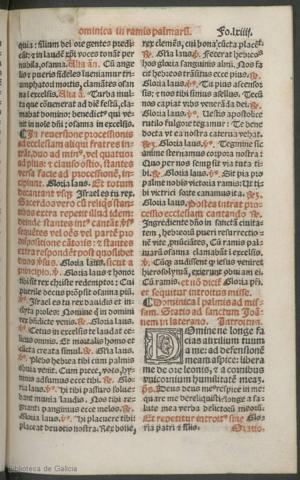 Dominica in ramis palmarũ. Fo.lxiiij.
quia: filium dei ore gentes predi-
cãt: ⁊ in laudẽ xp̃i voces tonãt per
nibila, osanna. Añ. Cũ ange
lis ⁊ pueris fideles inueniamur tri
umphatori mortis, clamãtes osan
na in excelsis. Aña. Turba mul-
ta que cõuenerat ad diẽ festũ, cla-
mabat domino: benedict' qui ve-
nit in noĩe dñi: osanna in excelsis.
In reuersione processionis
ad ecclesiam aliqui fratres in-
trãt, duo ad minꝰ, vel quatuor
ad plus: ⁊ clauso ostio, stantes
versa facie ad processionẽ, in-
cipiunt. Gloria laus. Et totum
decantent vsq; Israel es tu rex.
Sacerdos vero cũ reliq̃s stan-
tibus extra repetit illud idem:
deinde stantes intꝰ cantãt vs̃
sequẽtes vel oẽs vel partẽ pro
dispositione cãtoris: ⁊ stantes
extra respondẽt post quoslibet
duos vs̃us. Gloria laus. sicut a
principio. Gloria laus ⁊ honor
tibi sit rex christe redemptor: Cui
puerile decus prõpsit osanna piũ.
Israel es tu rex dauidis et in-
clyta proles: Nomine q̃ in domini
rex bñdicte venis. Gloria laus.
Cetus in excelsis te laudat ce-
licus omnis: Et mortalis homo et
cũcta creata simul. Gloria laus.
Plebs hebrea tibi cum palmis
obuia venit: Cum prece, voto, hy-
mnis adsumus ecce tibi. Glo-
ria laus. Hi tibi passuro solue-
bant munia laudis: Nos tibi re-
gnanti pangimus ecce melos.
Gloria laus. Hi placuere tibi:
placeat deuotio nostra: Rex bone,
rex clemẽs, cui bona cũcta placẽt.
Gloria laus. Fecerat hebreos
hos gloria sanguinis alti: Nos fa
cit hebreos trãsitus ecce pius.
Gloria laus. Tu pius ascensis
fis: et nos tibi simus asellus: Tecũ
nos capiat vrbs veneãda dei.
Gloria laus. Vestis apostolice
rutilo fulgore tegamur: Te bene
docta vt ea nostra caterua vehat.
Gloria laus. Tegmine sic
animę sternamus corpora nostra:
Quo per nos semp sit via tuta ti-
bi. Gloria laus. Sit pia pro
palme nobis victoria ramis: Vt ti-
bi victrici sorte canamus ita.
Gloria laus. Postea intrat pro-
cessio ecclesiam cantando
Ingrediente dño in sanctã ciuita
tem, hebreorũ pueri resurrectio-
nẽ vite, pnũciãtes, Cũ ramis pal-
marũ osanna clamabãt ĩ excelsis.
Cũq; audissent q̃ iesus veniret
hierosolymã, exierunt obuiam ei.
Cũ ramis. et nõ dicit Gloria pr̃i.
et sequitur introitus misse.
Dominica ĩ palmis ad mis-
sam. Statio ad sanctum Joã-
nem in laterano. Introitus.
Domine ne longe fa
cias auxilium tuum
a me: ad defensionẽ
meam aspice: libera
me de ore leonis, ⁊ a cornibus
vnicornium humilitatẽ meaꝫ.
ps. Deus deus meꝰ respice in me:
quare me dereliquisti: longe a sa-
lute mea verba delictoruꝫ meoruꝫ.
Et repetitur introitꝰ sine Glo-
ria patri ⁊ filio. Oratio.
Biblioteca de Galicia